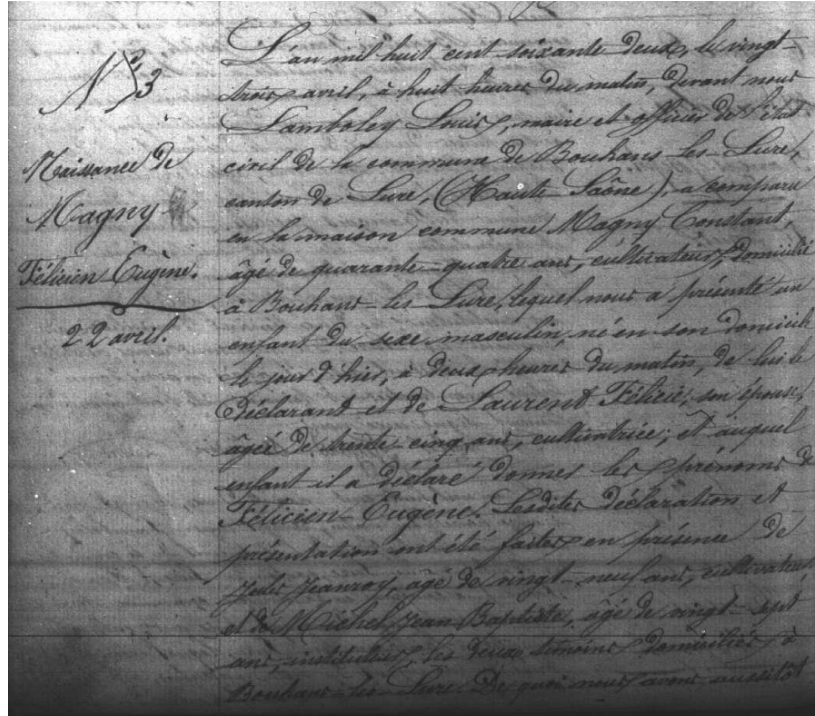 N° 3
Naissance de
Magny
Félicien Eugène.
22 avril.
L'an mil huit cent soixante deux, le vingt-
trois avril, à huit heures du matin, devant nous
Lamboley Louis, maire et officier de l'état
civil de la commune de Bouhans-les-Lure,
canton de Lure, (Haute-Saône), a comparu
en la maison commune Magny Constant,
âgé de quarante-quatre ans, cultivateur, domicilié
à Bouhans-les-Lure, lequel nous a présenté un
enfant du sexe masculin, né en son domicile
le jour d'hier, à deux heures du matin, de lui le
déclarant et de Laurent Félicie, son épouse,
âgée de trente cinq ans, cultivatrice; et auquel
enfant il a déclaré donner les prénoms de
Félicien-Eugène. Lesdites déclaration et
présentation ont été faites en présence de
Jules Jeanroy, âgé de vingt-neuf ans, cultivateur
et de Michel Jean Baptiste, âgé de vingt-sept
ans, instituteur, les deux témoins domiciliés à
Bouhans-les-Lure. De quoi nous avons aussitôt